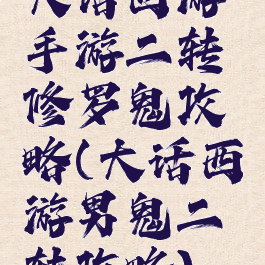 大话西游
手游二转
修罗鬼攻
略(大话西
游男鬼二
转攻略)